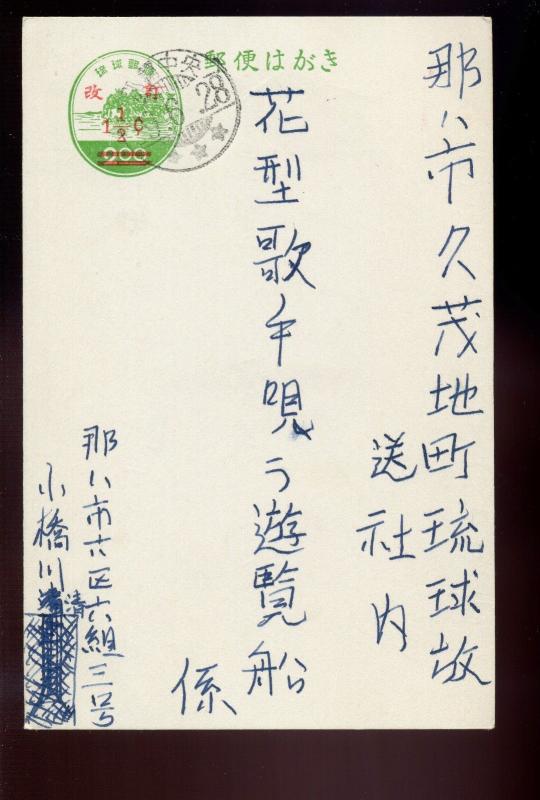 郵便はがき
琉球郵便
改訂
1 1/2 ¢
中央
28
那ハ市久茂地町琉球放
送社内
花型歌手唄う遊覧船
係
那ハ市六区六組三号
小橋川清